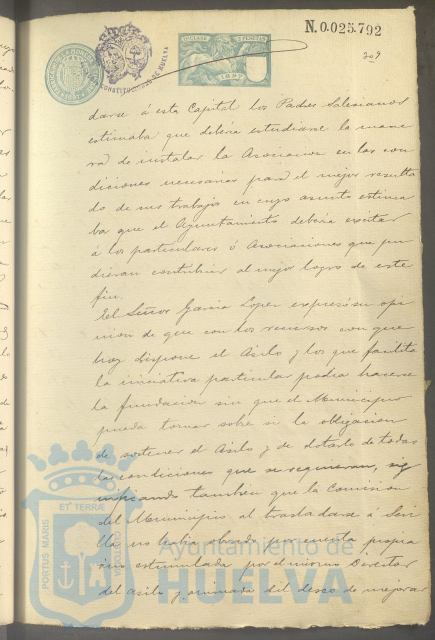 N.0.025.792
11ª CLASE 2 PESETAS
1897
CONSTITUCIONAL DE HUELVA
209
darse á esta Capital los Padres Salesianos
estimaba que debería estudiarse la mane
ra de instalar la Asociacion en las con
diciones necesarias para el mejor resulta
do de sus trabajos en cuyo asunto estima
ba que el Ayuntamiento debería escitar
á los particulares ó Asociaciones que pu
dieran contribuir al mejor logro de este
fin.
El Señor Garcia Lopez expresó su opi
nion de que con los recursos con que
hoy dispone el Asilo y los que facilita
la iniciativa particular podia hacerse
la fundacion sin que el Municipio
pueda tomar sobre si la obligacion
de sostener el Asilo y de dotarlo de todas
las condiciones que se requieran, sig
nificando tambien que la Comision
del Municipio al trasladarse á Sevi
lla no habia obrado por cuenta propia
sino estimulada por el mismo Director
del Asilo y animada del deseo de mejorar
PORTUS MARIS ET TERRÆ CUSTODIO
Ayuntamiento de
HUELVA